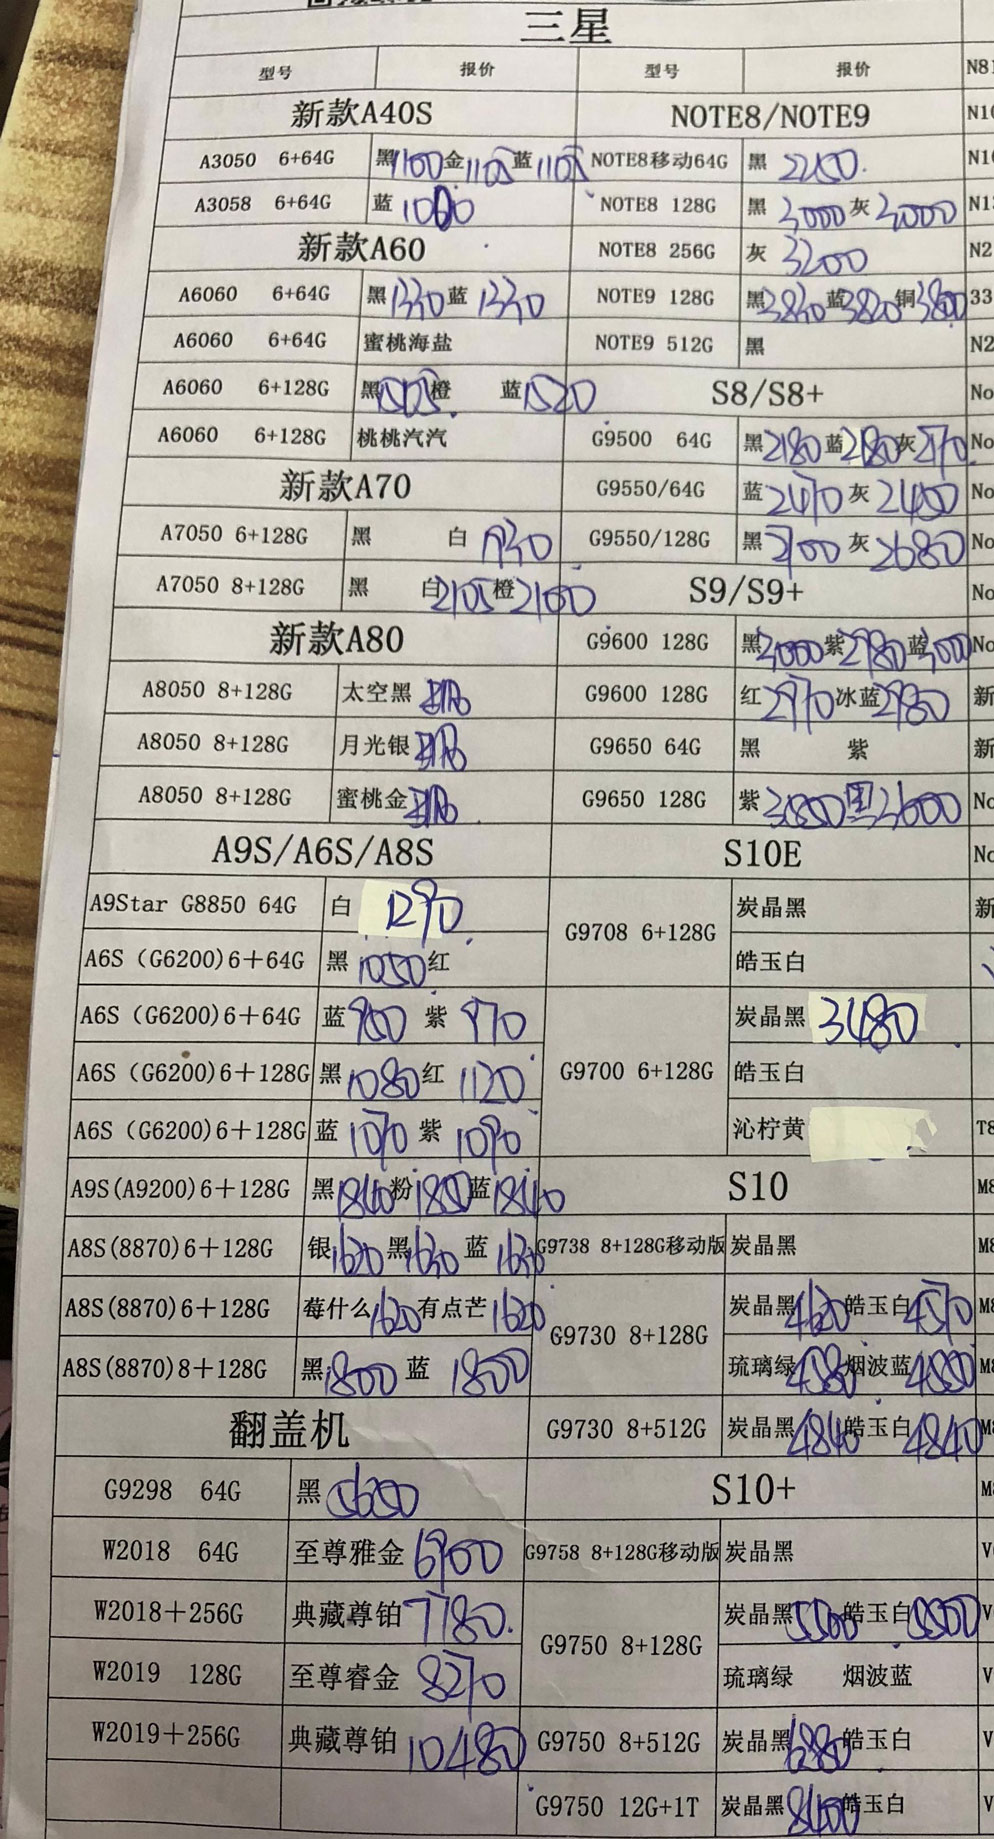 三星
型号 报价 型号 报价 N81
新款A40S NOTE8/NOTE9 N10
A3050 6+64G 黑1100金1105蓝1105 NOTE8移动64G 黑 2250. N10
A3058 6+64G 蓝 1000 NOTE8 128G 黑 3000 灰 3000
新款A60 NOTE8 256G 灰 3200 N2
A6060 6+64G 黑1330蓝1330 NOTE9 128G 黑3830蓝3820铜3800 33
A6060 6+64G 蜜桃海盐 NOTE9 512G 黑 N2
A6060 6+128G 黑1505橙 蓝1520 S8/S8+ No
A6060 6+128G 桃桃汽汽 G9500 64G 黑2180蓝2180灰2170 No
新款A70 G9550/64G 蓝2470灰2450 No
A7050 6+128G 黑 白 1930 G9550/128G 黑2700灰2680 No
A7050 8+128G 黑 白2105橙2100 S9/S9+ No
新款A80 G9600 128G 黑3000紫2980蓝3000 No
A8050 8+128G 太空黑 G9600 128G 红2970冰蓝2980 新
A8050 8+128G 月光银 G9650 64G 黑 紫 新
A8050 8+128G 蜜桃金 G9650 128G 紫 黑3600 No
A9S/A6S/A8S S10E
A9Star G8850 64G 白 1290 G9708 6+128G 炭晶黑 新
A6S（G6200)6＋64G 黑1050红 皓玉白
A6S（G6200)6＋64G 蓝960 紫 970 G9700 6+128G 炭晶黑 3480
A6S（G6200)6＋128G 黑1080红 1120 皓玉白
A6S（G6200)6＋128G 蓝 1070 紫 1090 沁柠黄 T8
A9S(A9200)6＋128G 黑1840粉1850蓝1840 S10 M8
A8S(8870)6＋128G 银1620黑1630蓝1630 G9738 8+128G移动版 炭晶黑 M8
A8S(8870)6＋128G 莓什么1620有点芒1620 G9730 8+128G 炭晶黑4620皓玉白4570 M8
A8S(8870)8＋128G 黑1800 蓝 1800 琉璃绿4580烟波蓝4550 M8
翻盖机 G9730 8+512G 炭晶黑4840皓玉白4840
G9298 64G 黑 5650 S10+
W2018 64G 至尊雅金 6900 G9758 8+128G移动版 炭晶黑 V
W2018＋256G 典藏尊铂 7180. G9750 8+128G 炭晶黑5500皓玉白5500 V
W2019 128G 至尊睿金 8270 琉璃绿 烟波蓝 V
W2019＋256G 典藏尊铂 10480 G9750 8+512G 炭晶黑6280皓玉白 V
G9750 12G+1T 炭晶黑8400皓玉白 V